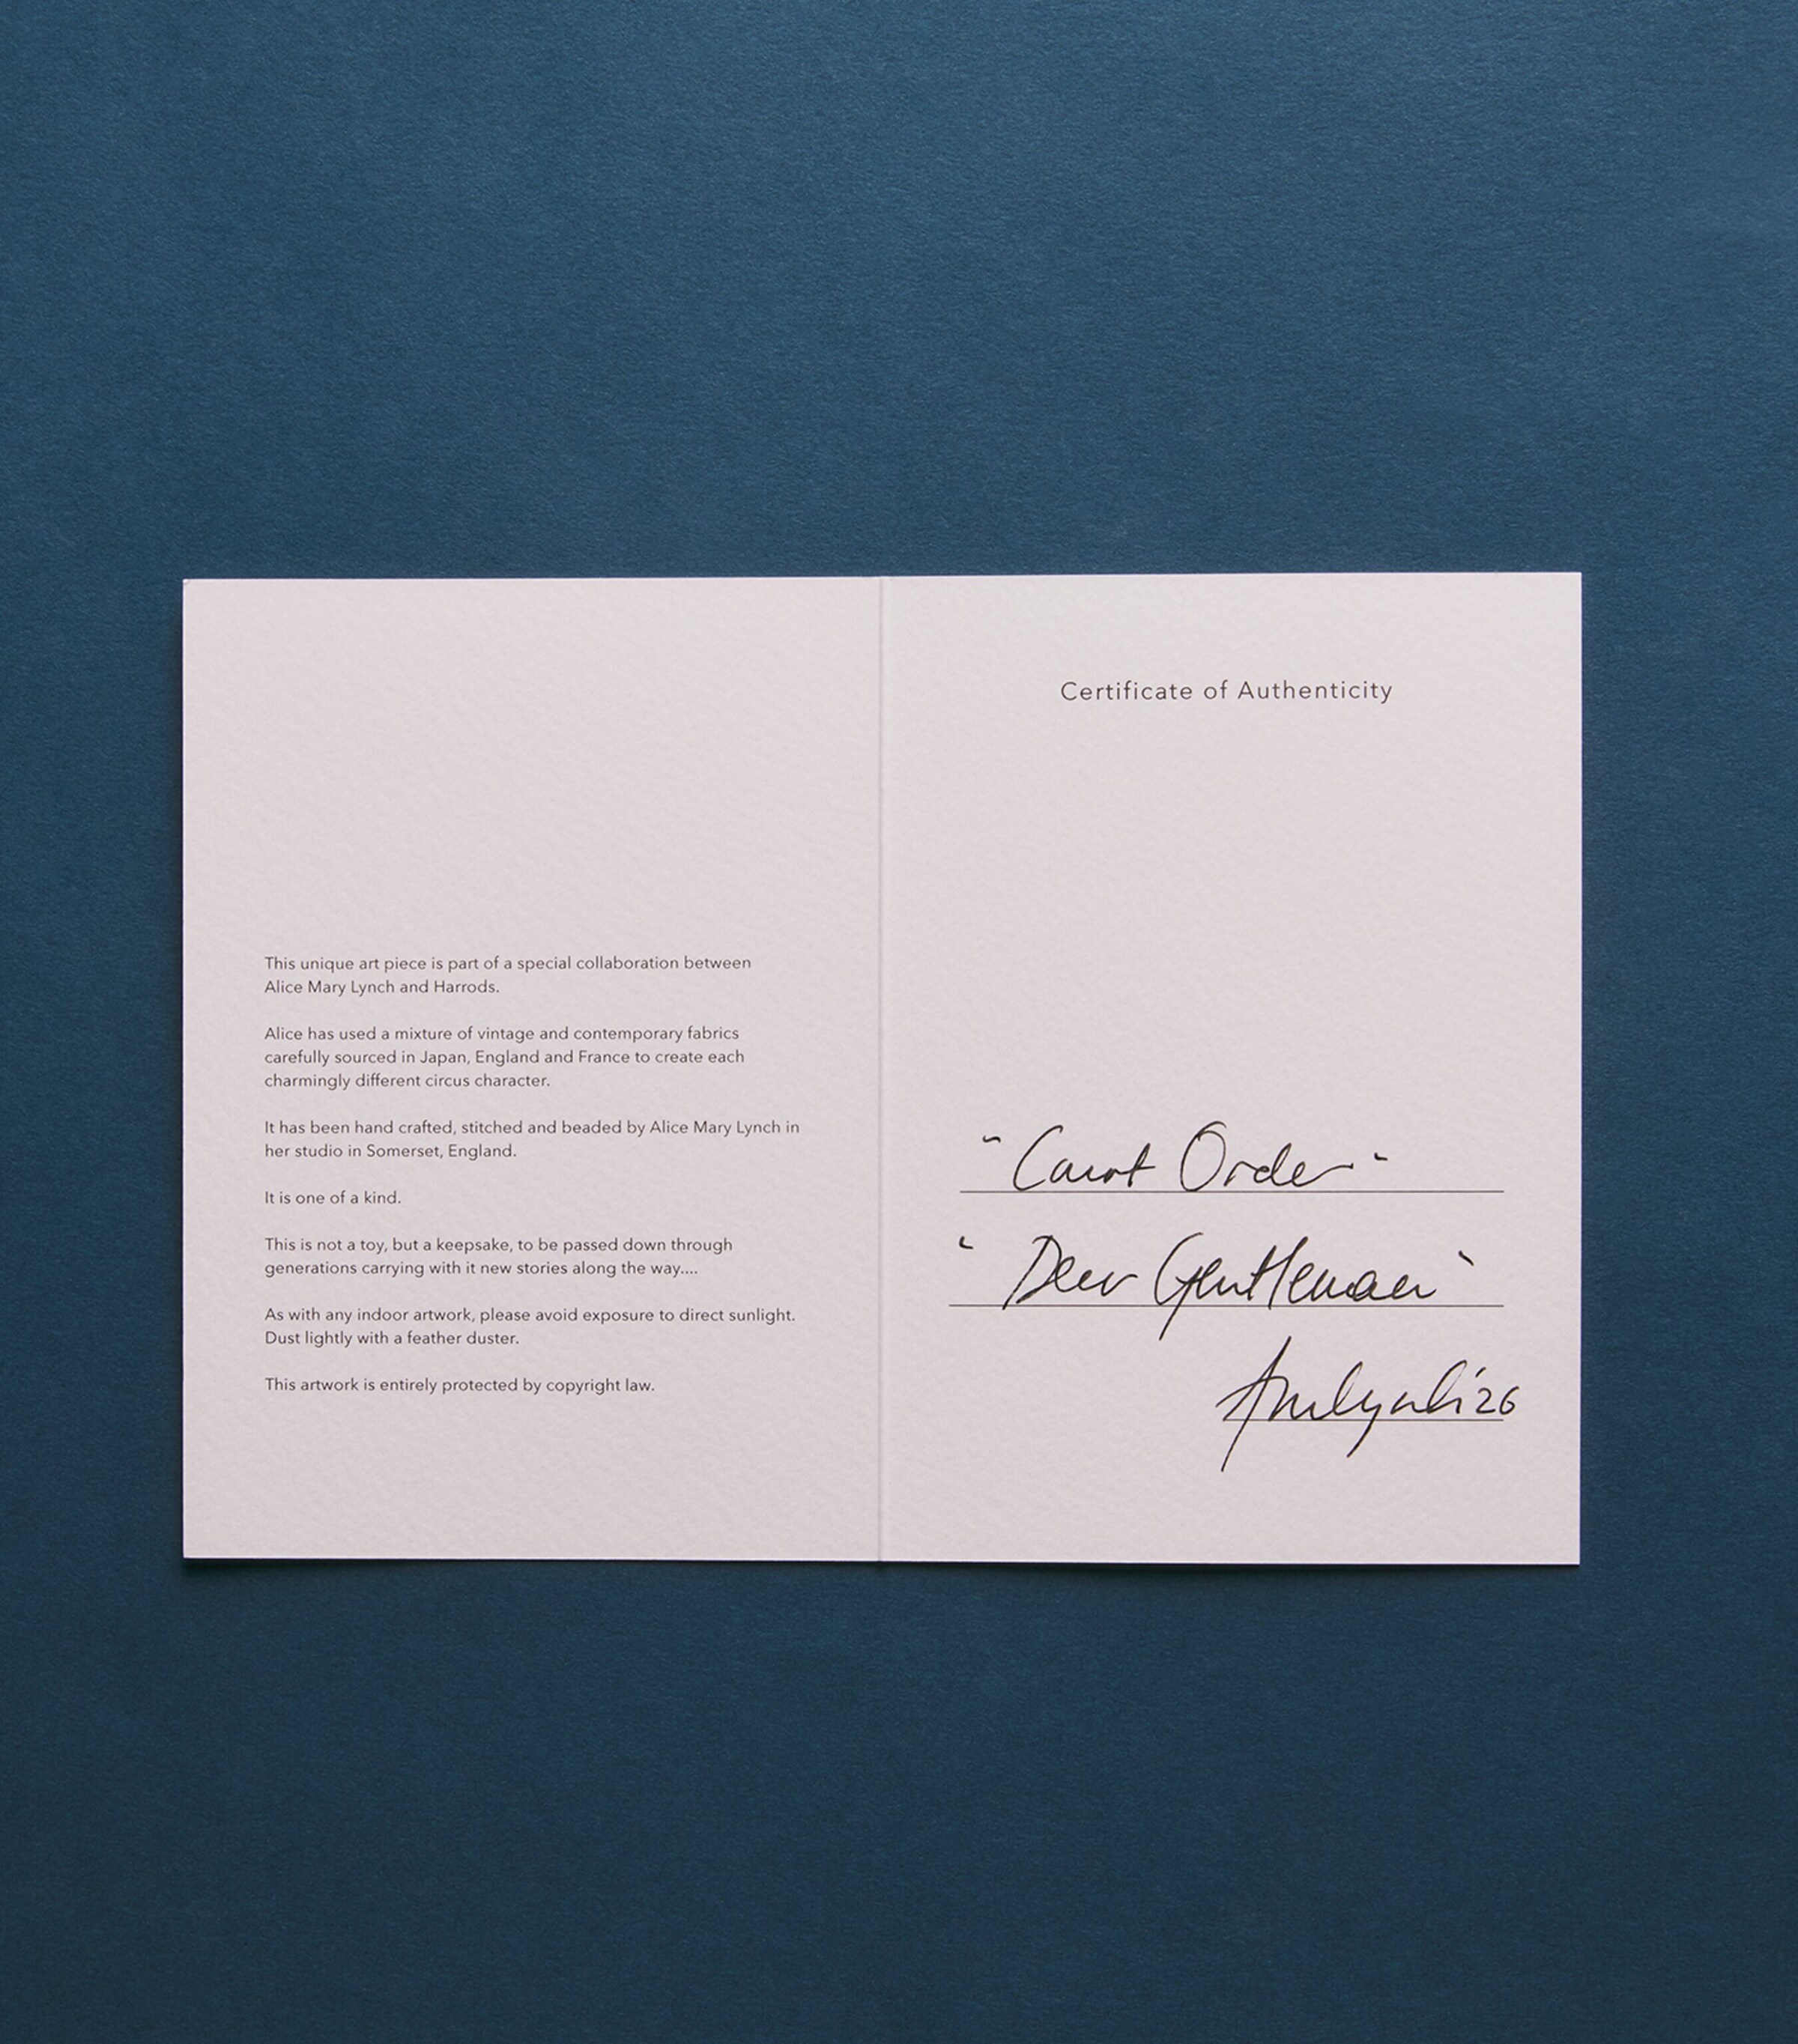 This unique art piece is part of a special collaboration between
Alice Mary Lynch and Harrods.
Alice has used a mixture of vintage and contemporary fabrics
carefully sourced in Japan, England and France to create each
charmingly different circus character.
It has been hand crafted, stitched and beaded by Alice Mary Lynch in
her studio in Somerset, England.
It is one of a kind.
This is not a toy, but a keepsake, to be passed down through
generations carrying with it new stories along the way....
As with any indoor artwork, please avoid exposure to direct sunlight.
Dust lightly with a feather duster.
This artwork is entirely protected by copyright law.
Certificate of Authenticity
Order"
Gentleman"
26